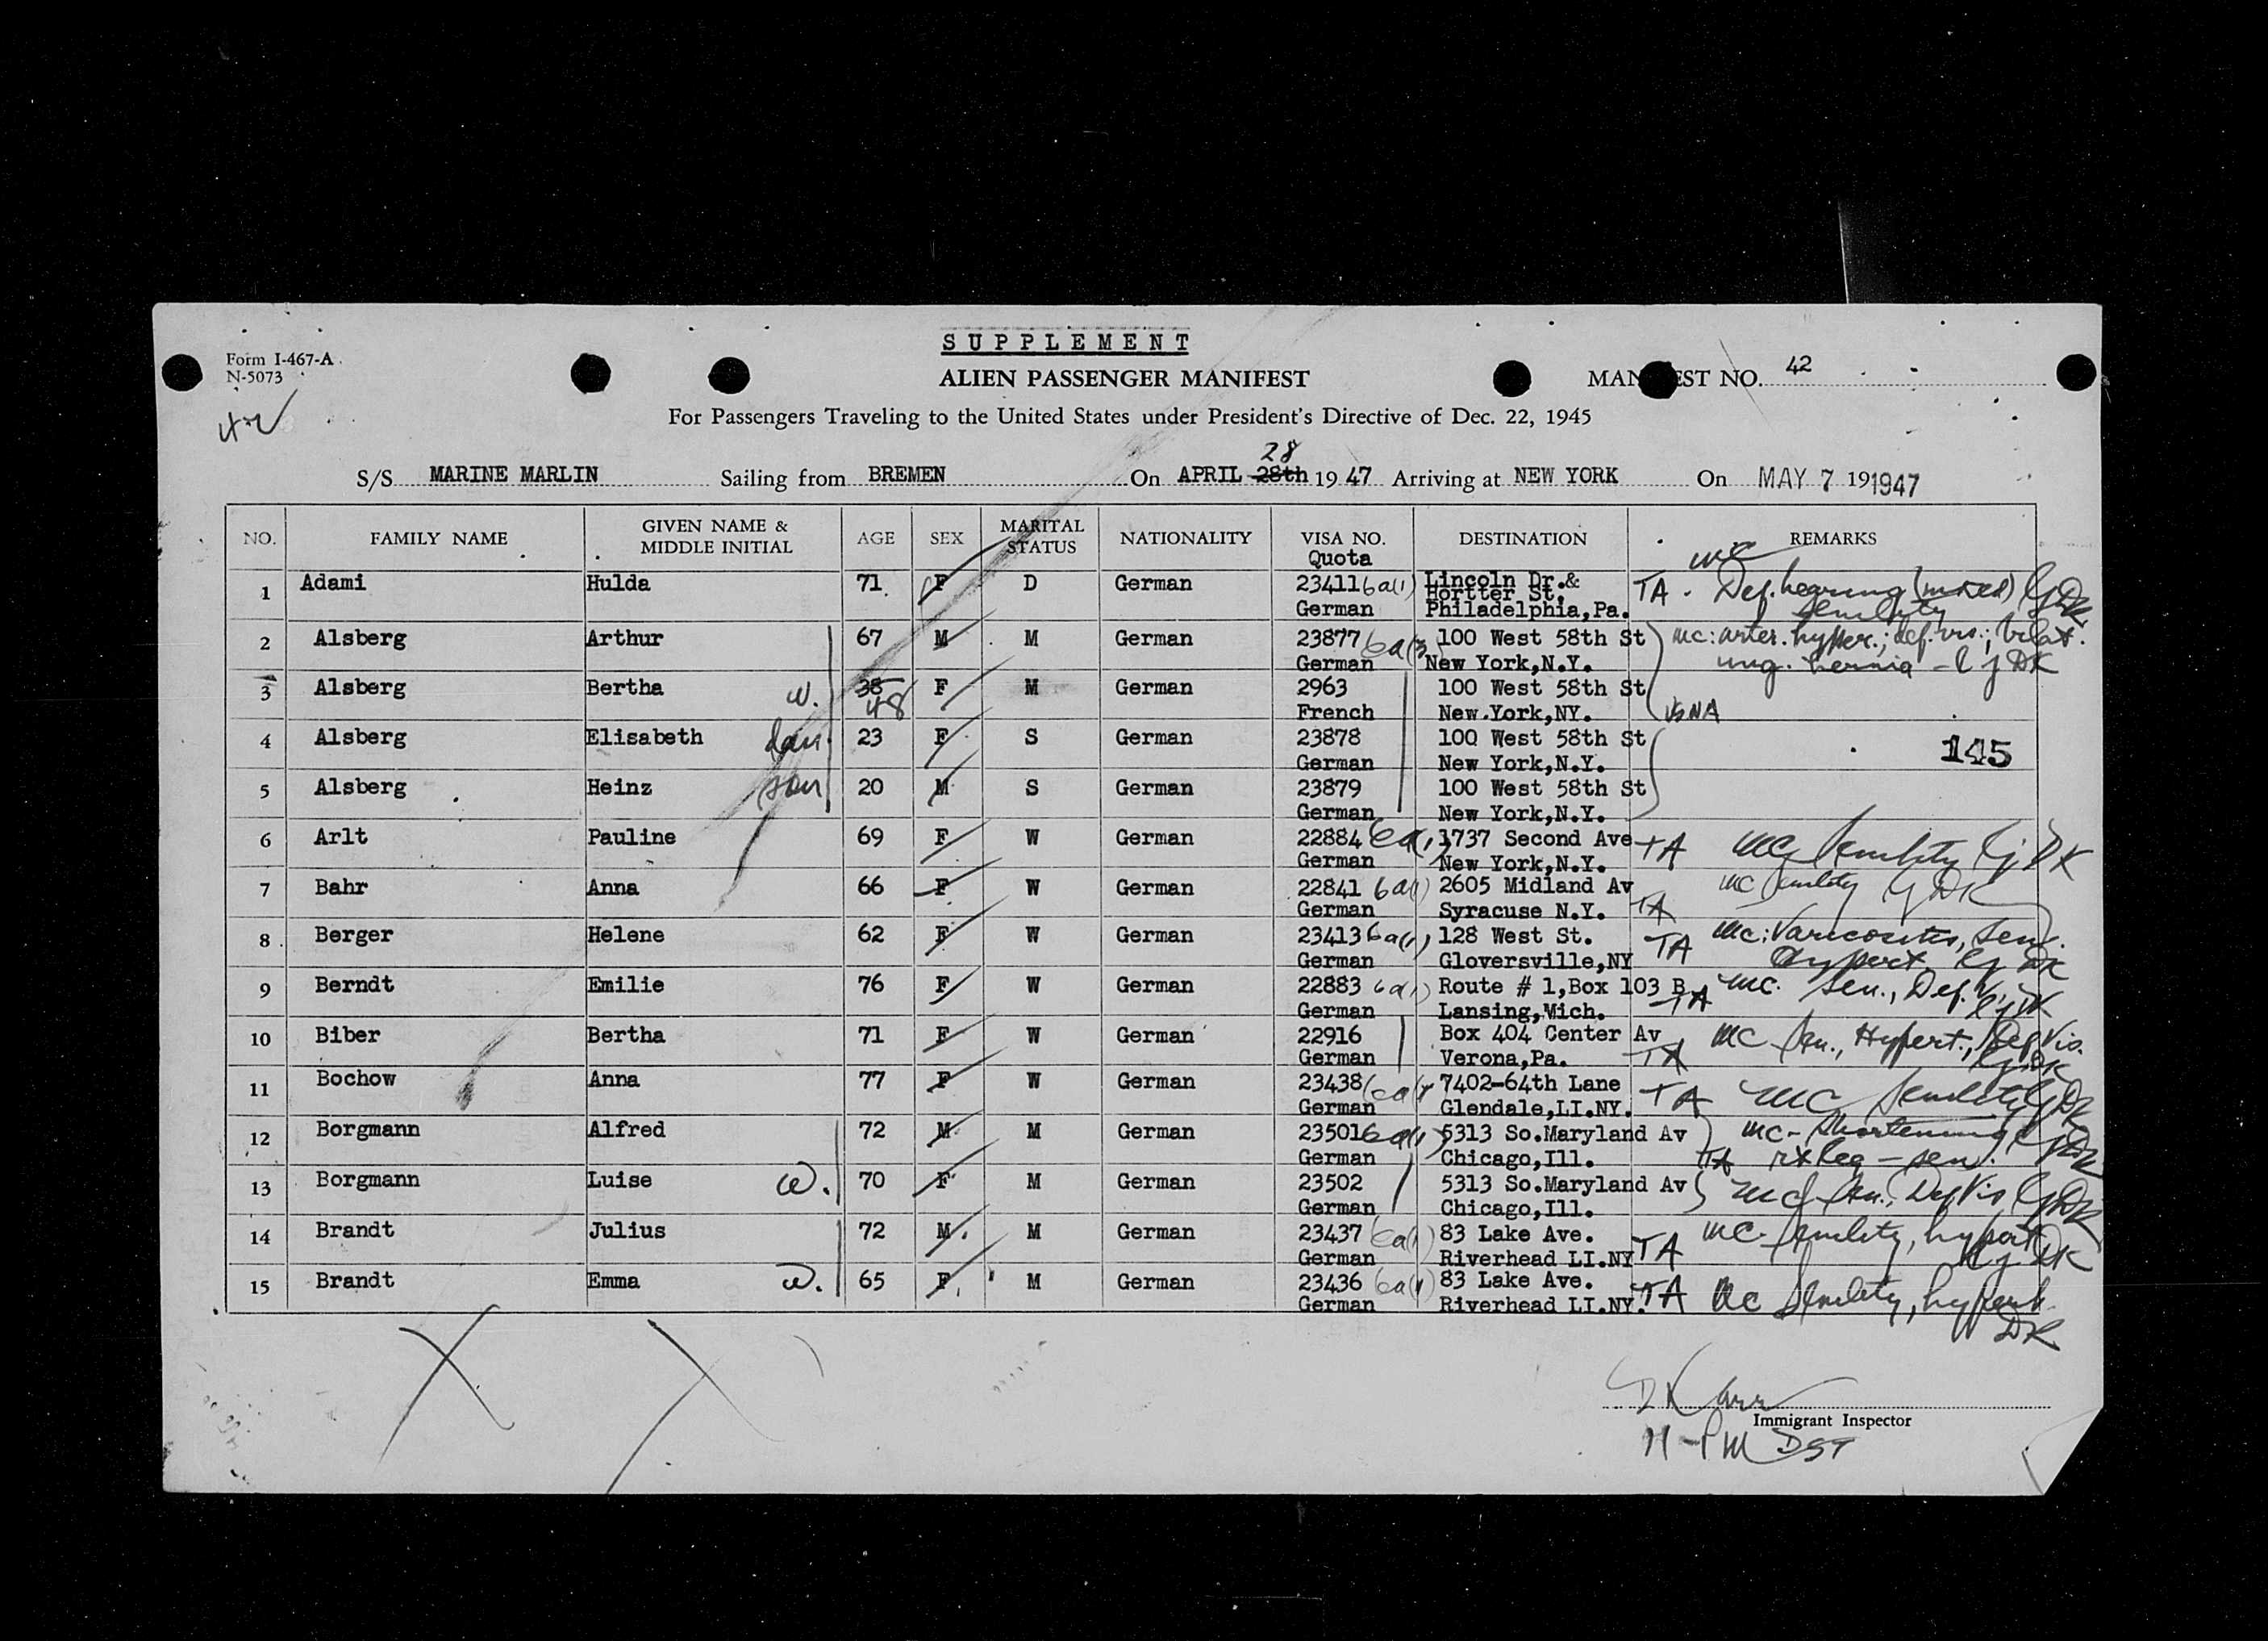 SUPPLEMENT
Form I-467-A
N-5073
ALIEN PASSENGER MANIFEST
MANIFEST NO. 42
42
For Passengers Traveling to the United States under President's Directive of Dec. 22, 1945
28
S/S MARINE MARLIN Sailing from BREMEN On APRIL 28th 1947 Arriving at NEW YORK On MAY 7 191947
NO. FAMILY NAME GIVEN NAME & MIDDLE INITIAL AGE SEX MARITAL STATUS NATIONALITY VISA NO. Quota DESTINATION REMARKS
1 Adami Hulda 71 F D German 23411 6a(1) Lincoln Dr.& TA. MC Def. hearing (mixed)
Hortter St. senility
German Philadelphia,Pa.
2 Alsberg Arthur 67 M M German 23877 6a(3) 100 West 58th St mc: arter. hyper.; def. vis.; bilat.
German New York,N.Y. ing. hernia DK
3 Alsberg Bertha w. 38 48 F M German 2963 100 West 58th St
French New York,NY. USNA
4 Alsberg Elisabeth dau. 23 F S German 23878 100 West 58th St 145
German New York,N.Y.
5 Alsberg Heinz son 20 M S German 23879 100 West 58th St
German New York,N.Y.
6 Arlt Pauline 69 F W German 22884 6a(1) 1737 Second Ave TA MC Senility DK
German New York,N.Y.
7 Bahr Anna 66 F W German 22841 6a(1) 2605 Midland Av MC Senility DK
German Syracuse N.Y. TA
8 Berger Helene 62 F W German 23413 6a(1) 128 West St. TA MC: Varicosities, Sen.
German Gloversville,NY Hypert. DK
9 Berndt Emilie 76 F W German 22883 6a(1) Route # 1,Box 103 B TA MC. Sen., Def. V. DK
German Lansing,Mich.
10 Biber Bertha 71 F W German 22916 Box 404 Center Av MC Sen., Hypert., Def Vis.
German Verona,Pa. TA DK
11 Bochow Anna 77 F W German 23438 6a(1) 7402-64th Lane TA MC Senility DK
German Glendale,LI.NY.
12 Borgmann Alfred 72 M M German 23501 6a(1) 5313 So.Maryland Av MC- Shortening
German Chicago,Ill. TA rt leg - sen. DK
13 Borgmann Luise w. 70 F M German 23502 5313 So.Maryland Av MC Sen., Def Vis DK
German Chicago,Ill.
14 Brandt Julius 72 M M German 23437 6a(1) 83 Lake Ave. MC- Senility, hypert
German Riverhead LI.NY TA DK
15 Brandt Emma w. 65 F M German 23436 6a(1) 83 Lake Ave. TA MC Senility, hypert.
German Riverhead LI.NY. DK
D Karr
Immigrant Inspector
11-PM DST